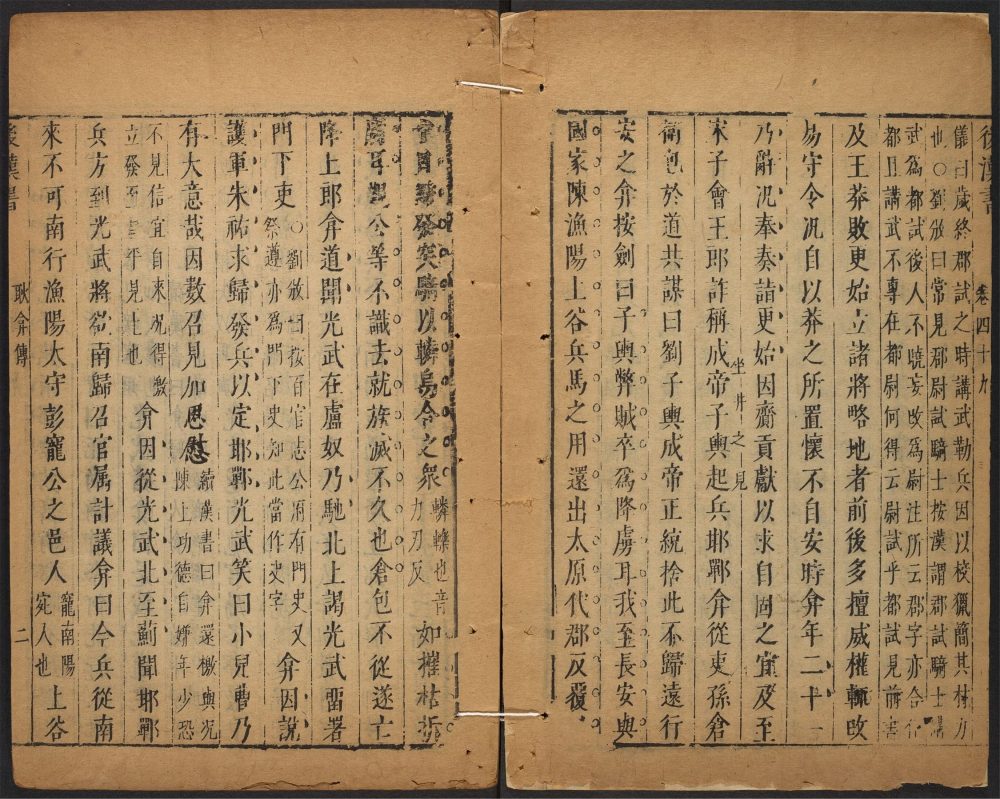 後漢書
卷四十九
儀曰歲終郡試之時講武勒兵因以校獵簡其材力
也○劉攽曰常見郡尉試騎士按漢謂郡試騎士
武爲都試後人不曉妄改爲尉注所云郡字亦合
都且講武不專在都尉何得云尉試乎都試見前書
及王莽敗更始立諸將略地者前後多擅威權輒改
易守令况自以莽之所置懷不自安時弇年二十一
乃辭况奉奏詣更始因齎貢獻以求自固之宜及至
宋子會王郎詐稱成帝子輿起兵邯鄲弇從吏孫倉
坐井之見
衛包於道共謀曰劉子輿成帝正統捨此不歸遠行
安之弇按劍曰子輿弊賊卒爲降虜耳我至長安與
國家陳漁陽上谷兵馬之用還出太原代郡反覆
日發突騎以轔烏合之衆
轔轢也音
力刃反
如摧枯折
腐耳觀公等不識去就族滅不久也倉包不從遂亡
降王郎弇道聞光武在盧奴乃馳北上謁光武留署
門下吏
○劉攽曰按百官志公府有門史又
祭遵亦爲門下史知此當作史字
弇因說
護軍朱祐求歸發兵以定邯鄲光武笑曰小兒曹乃
有大意哉因數召見加恩慰
續漢書曰弇還檄與况
陳上功德自嫌年少恐
不見信宜自來况得檄
立發至昌平見上也
弇因從光武北至薊聞邯鄲
兵方到光武將欲南歸召官屬計議弇曰今兵從南
來不可南行漁陽太守彭寵公之邑人
寵南陽
宛人也
上谷
後漢書
耿弇傳
二